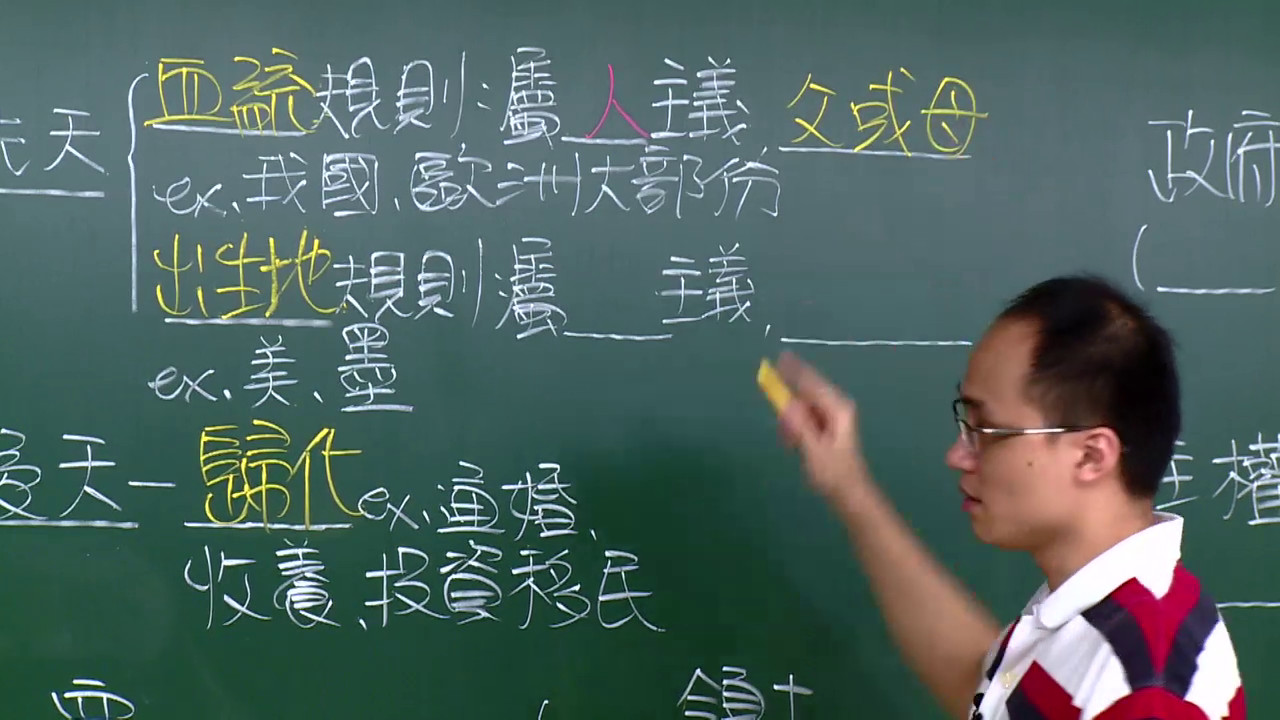 血疏規則:屬人主義 父或母
ex.我國、歐洲大部份
先天
出生地規則:屬__主義,____
ex.美、墨
後天-歸化ex.通婚、
收養、投資移民
政府
(____
主權
領土